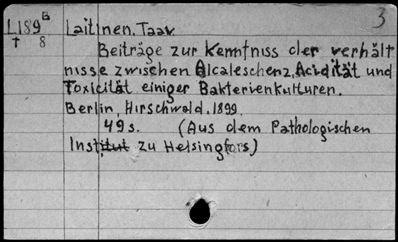 3
L189 B Laitinen, Taav.
† 8 Beiträge zur Kenntniss der verhält
nisse zwischen Alcaleschenz, Acidität und
Toxicität einiger Bakterienkulturen.
Berlin, Hirschwald, 1899.
49 s. (Aus dem Pathologischen
Institut zu Helsingfors)